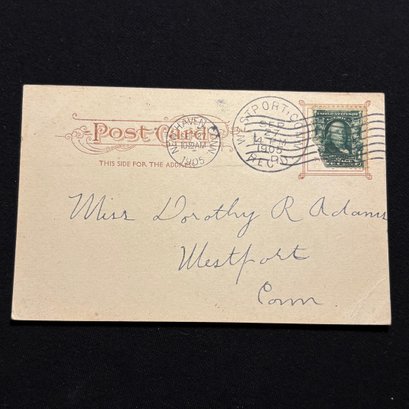 Post Card
THIS SIDE FOR THE ADDRESS
NEW HAVEN, CONN
1905
WESTPORT, CONN.
SEP
27
1905
REC'D
Miss Dorothy R Adams
Westport
Conn